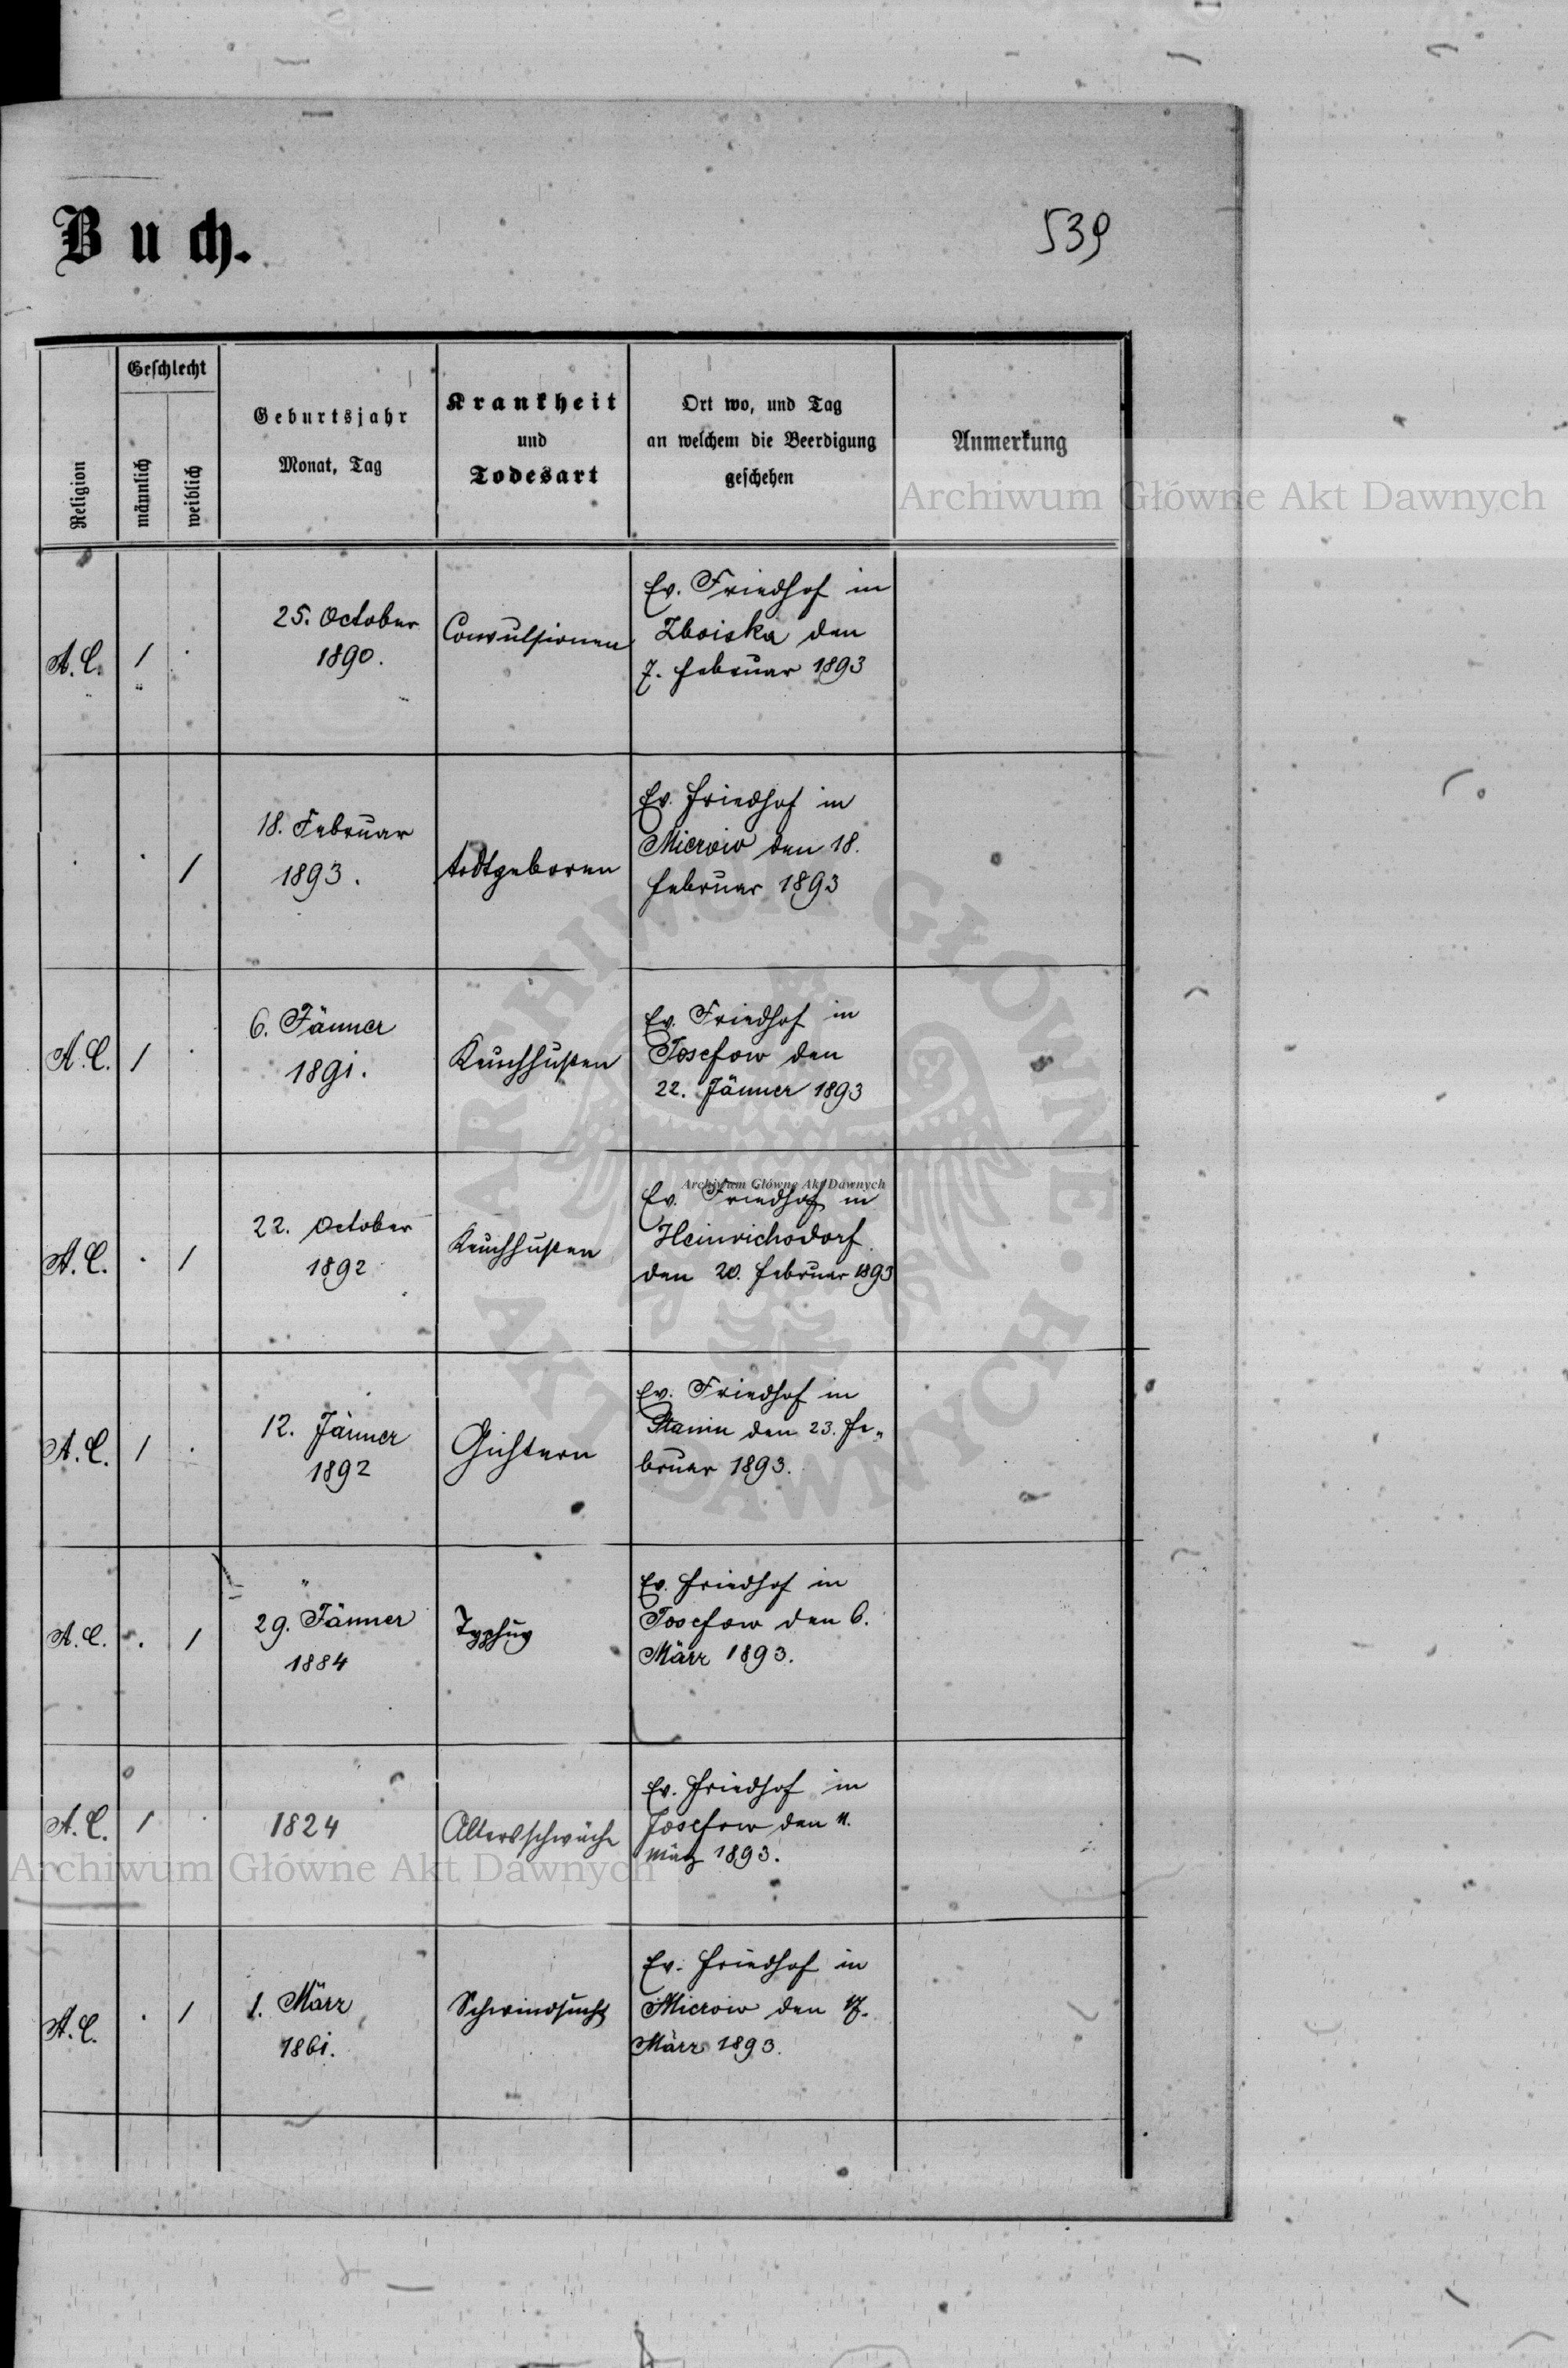 Buch.
539
Religion
Geschlecht
männlich
weiblich
Geburtsjahr
Monat, Tag
Krankheit
und
Todesart
Ort wo, und Tag
an welchem die Beerdigung
geschehen
Anmerkung
Archiwum Główne Akt Dawnych
A. C.
/
25. October
1890.
Convulsionen
Ev. Friedhof in
Zboiska den
7. Februar 1893
/
18. Februar
1893.
todtgeboren
Ev. Friedhof in
Mierow den 18.
Februar 1893
A. C.
/
6. Jänner
1891.
Keuchhusten
Ev. Friedhof in
Josefow den
22. Jänner 1893
A. C.
/
22. October
1892
Keuchhusten
Archiwum Główne Akt Dawnych
Ev. Friedhof in
Heinrichsdorf
den 20. Februar 1893
A. C.
/
12. Jänner
1892
Gichtern
Ev. Friedhof in
Stanin den 23. Fe„
bruar 1893.
A. C.
/
29. Jänner
1884
Typhus
Ev. Friedhof in
Josefow den 6.
März 1893.
A. C.
/
1824
Altersschwäche
Ev. Friedhof in
Josefow den 11.
März 1893.
Archiwum Główne Akt Dawnych
A. C.
/
1. März
1861.
Schwindsucht
Ev. Friedhof in
Mierow den 17.
März 1893.
ARCHIWUM GŁÓWNE AKT DAWNYCH